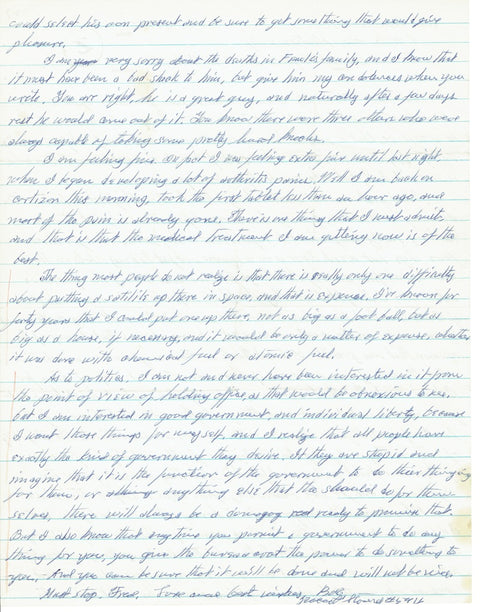 could select his own present and be sure to get something that would give
pleasure.
I am very sorry about the deaths in Frank's family, and I know that
it must have been a bad shock to him, but give him my condolences when you
write. You are right, he is a great guy, and naturally after a few days
rest he would come out of it. You know there were three others who were
always capable of taking some pretty hard knocks.
I am feeling fine. In fact I was feeling extra fine until last night,
when I began developing a lot of arthritis pains. Well I am back on
cortizon this morning, took the first tablet less than an hour ago, and
most of the pain is already gone. There is one thing that I must admit,
and that is that the medical treatment I am getting now is of the
best.
The thing most people do not realize is that there is really only one difficulty
about putting a satilite up there in space, and that is expense. I've known for
forty years that I could put one up there, not as big as a foot ball, but as
big as a house, if necessary, and it would be only a matter of expense, whether
it was done with chemical fuel or atomic fuel.
As to politics, I am not and never have been interested in it from
the point of view of holding office, as that would be obnoxious to me,
but I am interested in good government, and individual liberty, because
I want those things for myself, and I realize that all people have
exactly the kind of government they desire. If they are stupid and
imagine that it is the function of the government to do their thinking
for them, or do anything else that they should do for them-
selves, there will always be a ready to promise that.
But I also know that anytime you permit a government to do any
thing for you, you give the bureaucrat the power to do something to
you, And you can be sure that it will be done and will not be nice.
Must stop, Fred. Love and best wishes, Bob